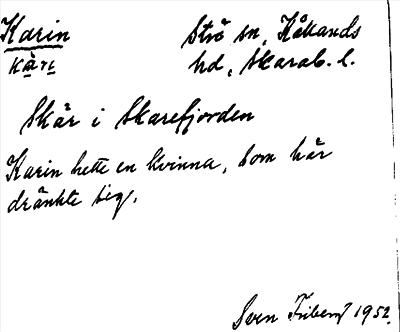 Karin Strö sn, Kållands
kàrı hd, Skarab. l.
Skär i Skarefjorden
Karin hette en kvinna, som här
dränkte sig.
Sven Friberg 1952.